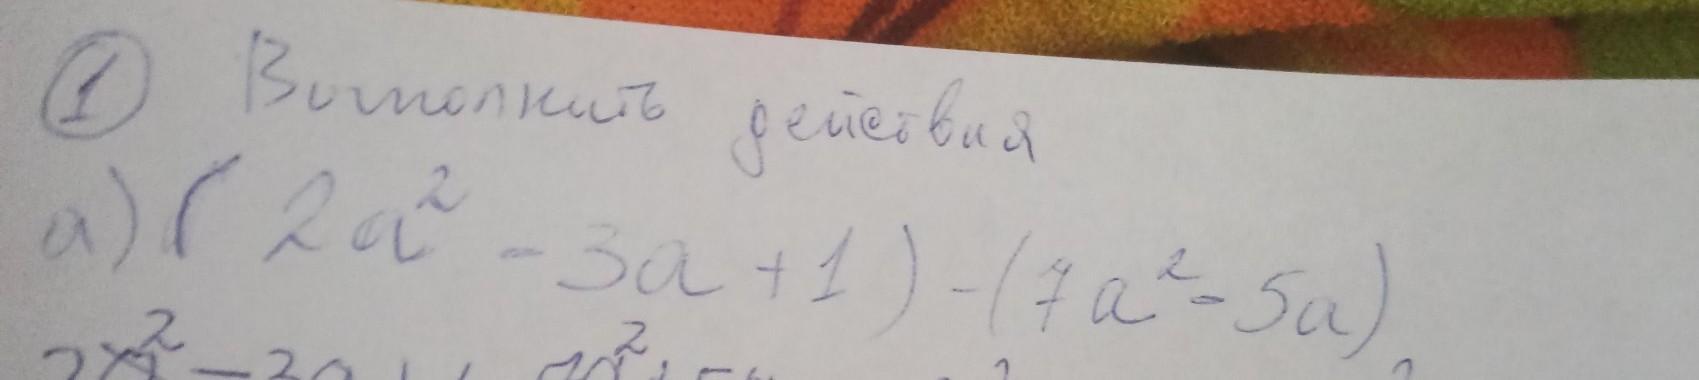 ① Выполнить действия
а) (2a² - 3a + 1) - (7a² - 5a)